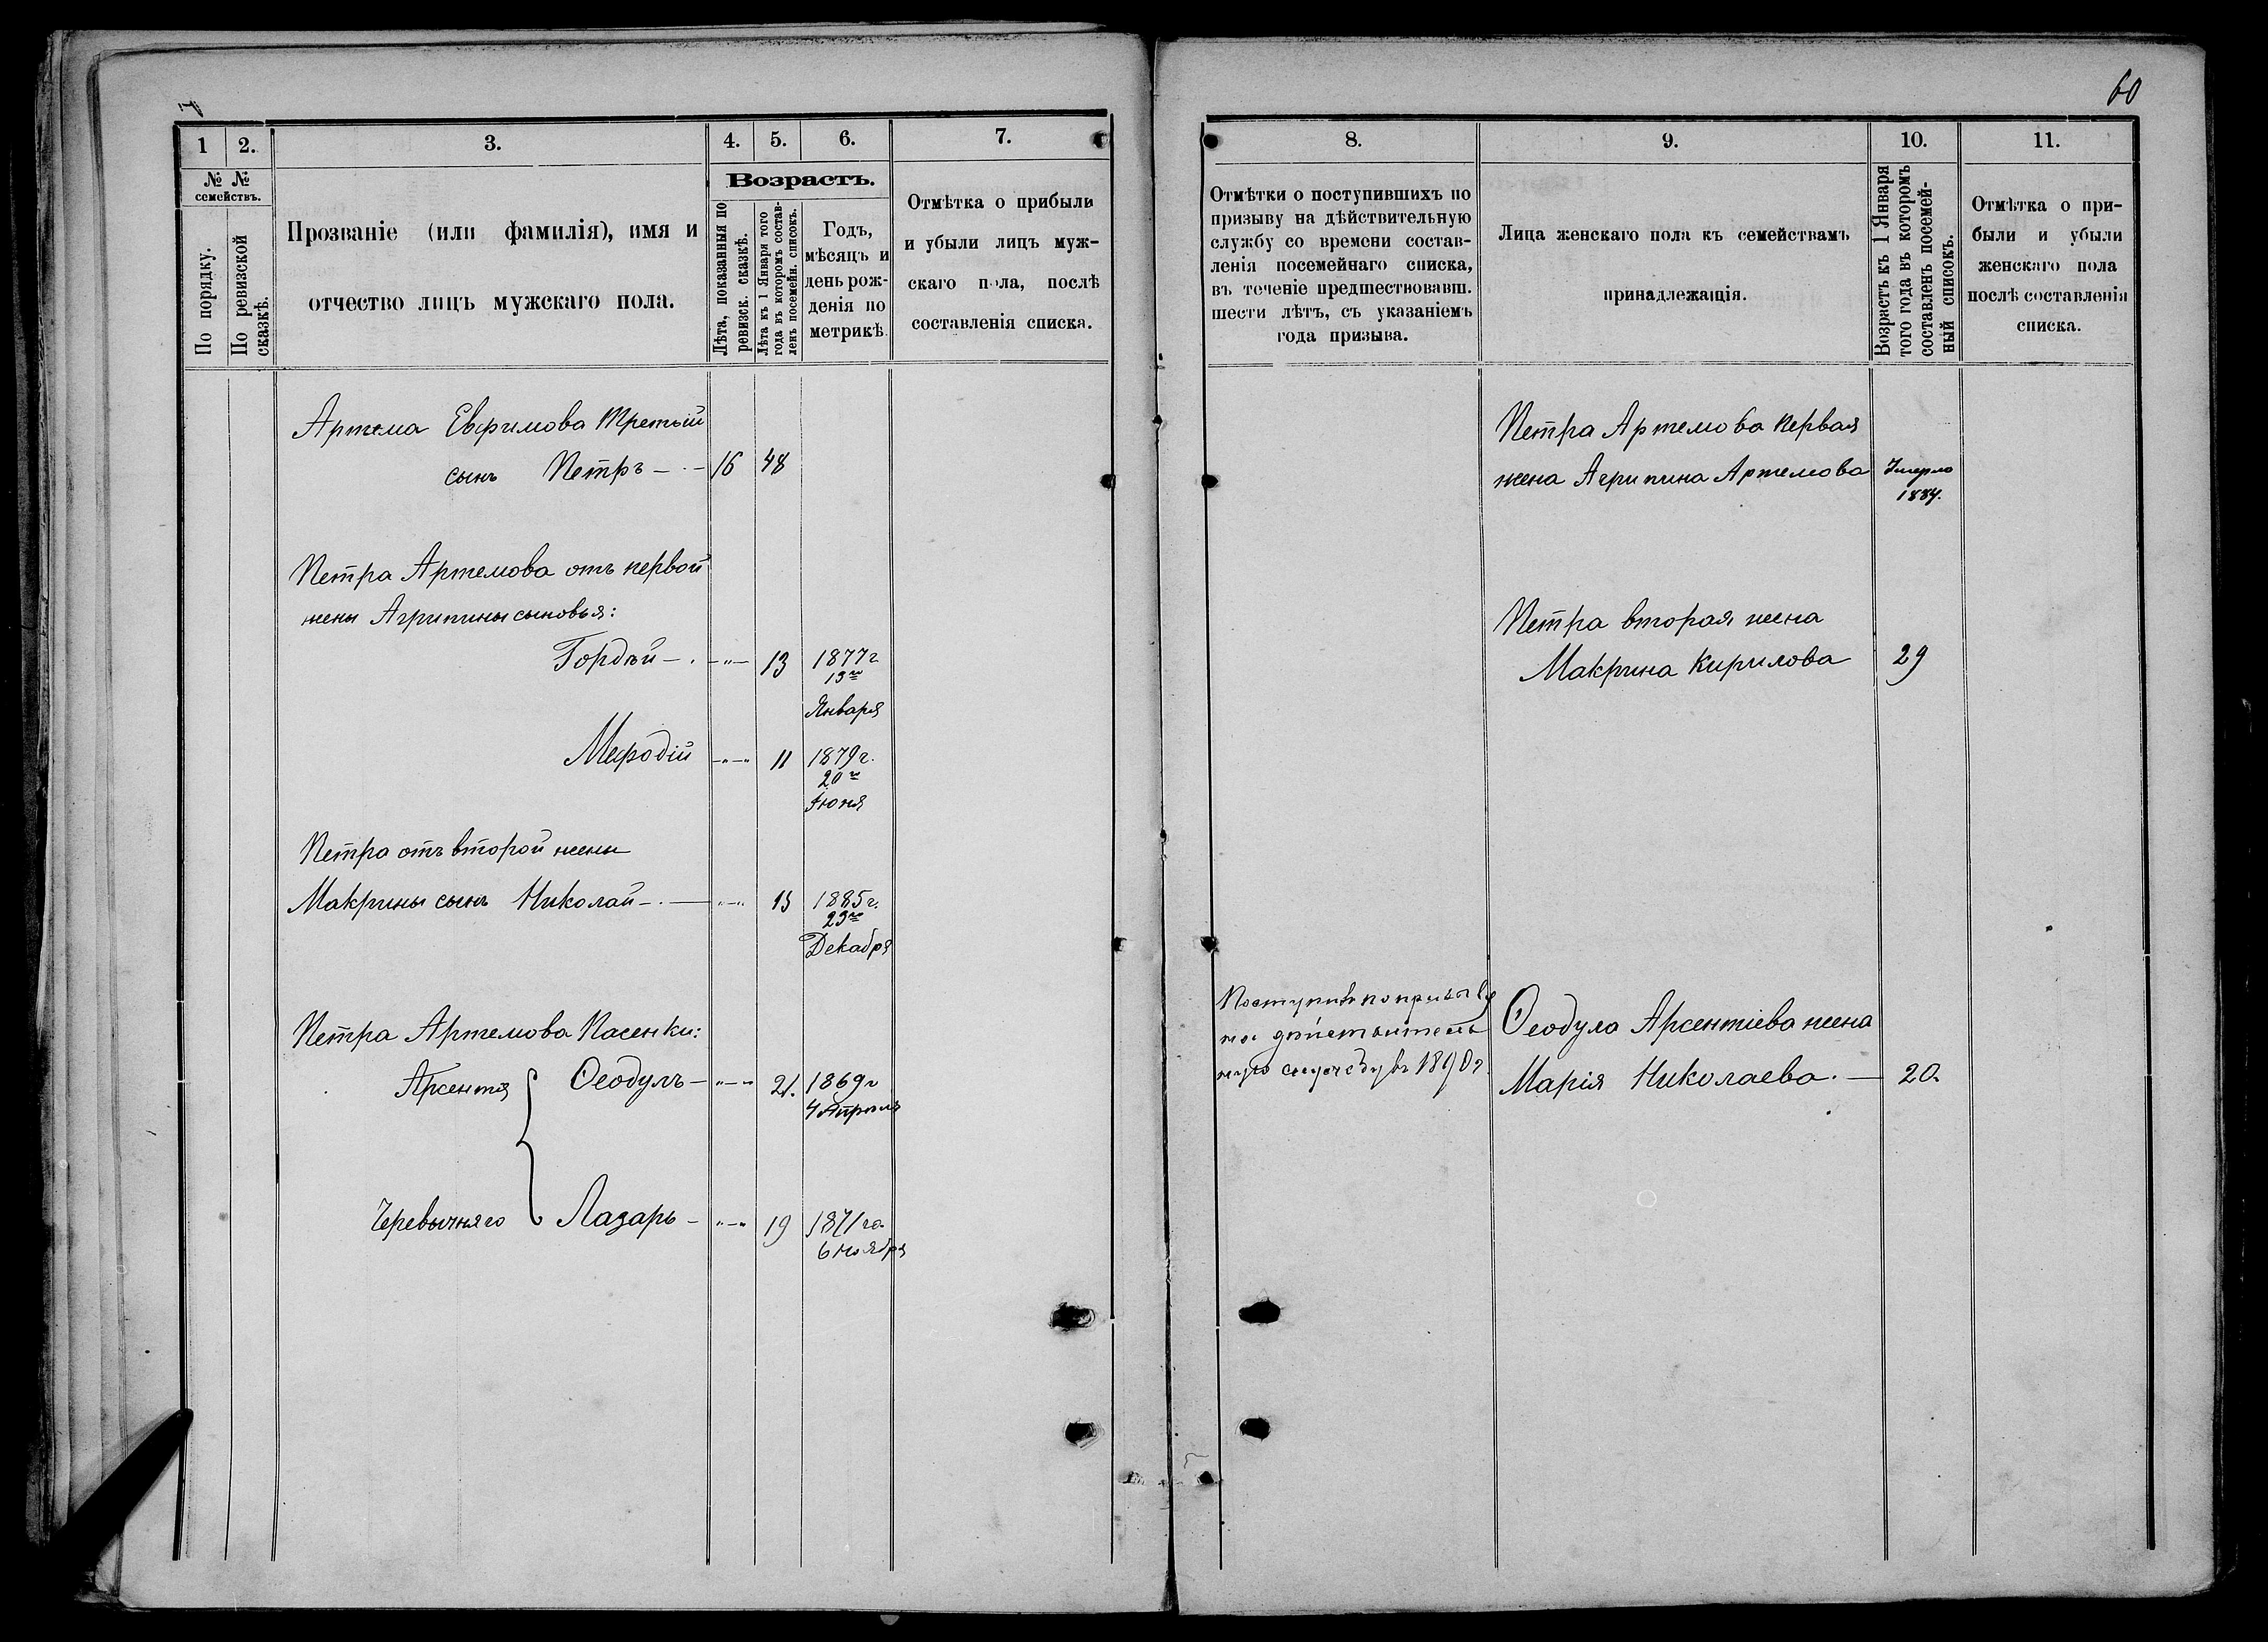 60
1
2.
3.
4.
5.
6.
7.
№ №
семействъ.
По порядку.
По ревизской
сказкѣ.
Прозваніе (или фамилія), имя и
отчество лицъ мужскаго пола.
Возрастъ.
Лѣта, показанныя по
ревизск. сказкѣ.
Лѣта къ 1 Января того
года въ которомъ состав-
ленъ посемейн. списокъ.
Годъ,
мѣсяцъ и
день рож-
денія по
метрикѣ
Отмѣтка о прибыли
и убыли лицъ муж-
скаго пола, послѣ
составленія списка.
Артема Евфимова третьій
сынъ Петръ — 16 48
Петра Артемова отъ первой
жены Агрипины сыновья:
Гордѣй — 13 1877 г
13го
Января
Мефодій 11 1879 г.
20го
Іюня
Петра отъ второй жены
Макрины сынъ Николай — 13 1885 г.
23го
Декабря
Петра Артемова Пасенки:
Арсентя { Ѳеодулъ — 21. 1869 г
4 Апрѣля
Черевычняго Лазарь — 19 1871 го
6 Ноября
8.
9.
10.
11.
Отмѣтки о поступившихъ по
призыву на дѣйствительную
службу со времени состав-
ленія посемейнаго списка,
въ теченіе предшествовавш.
шести лѣтъ, съ указаніемъ
года призыва.
Лица женскаго пола къ семействамъ
принадлежащія.
Возрастъ къ 1 Января
того года въ которомъ
составленъ посемей-
ный списокъ.
Отмѣтка о при-
были и убыли
женскаго пола
послѣ составленія
списка.
Петра Артемова первая
жена Агрипина Артемова Умерла
1884.
Петра вторая жена
Макрина Кирилова 29
Поступивъ по призыву
на дѣйствитель
ную службу въ 1890 г.
Ѳеодула Арсентіева жена
Марія Николаева. — 20.